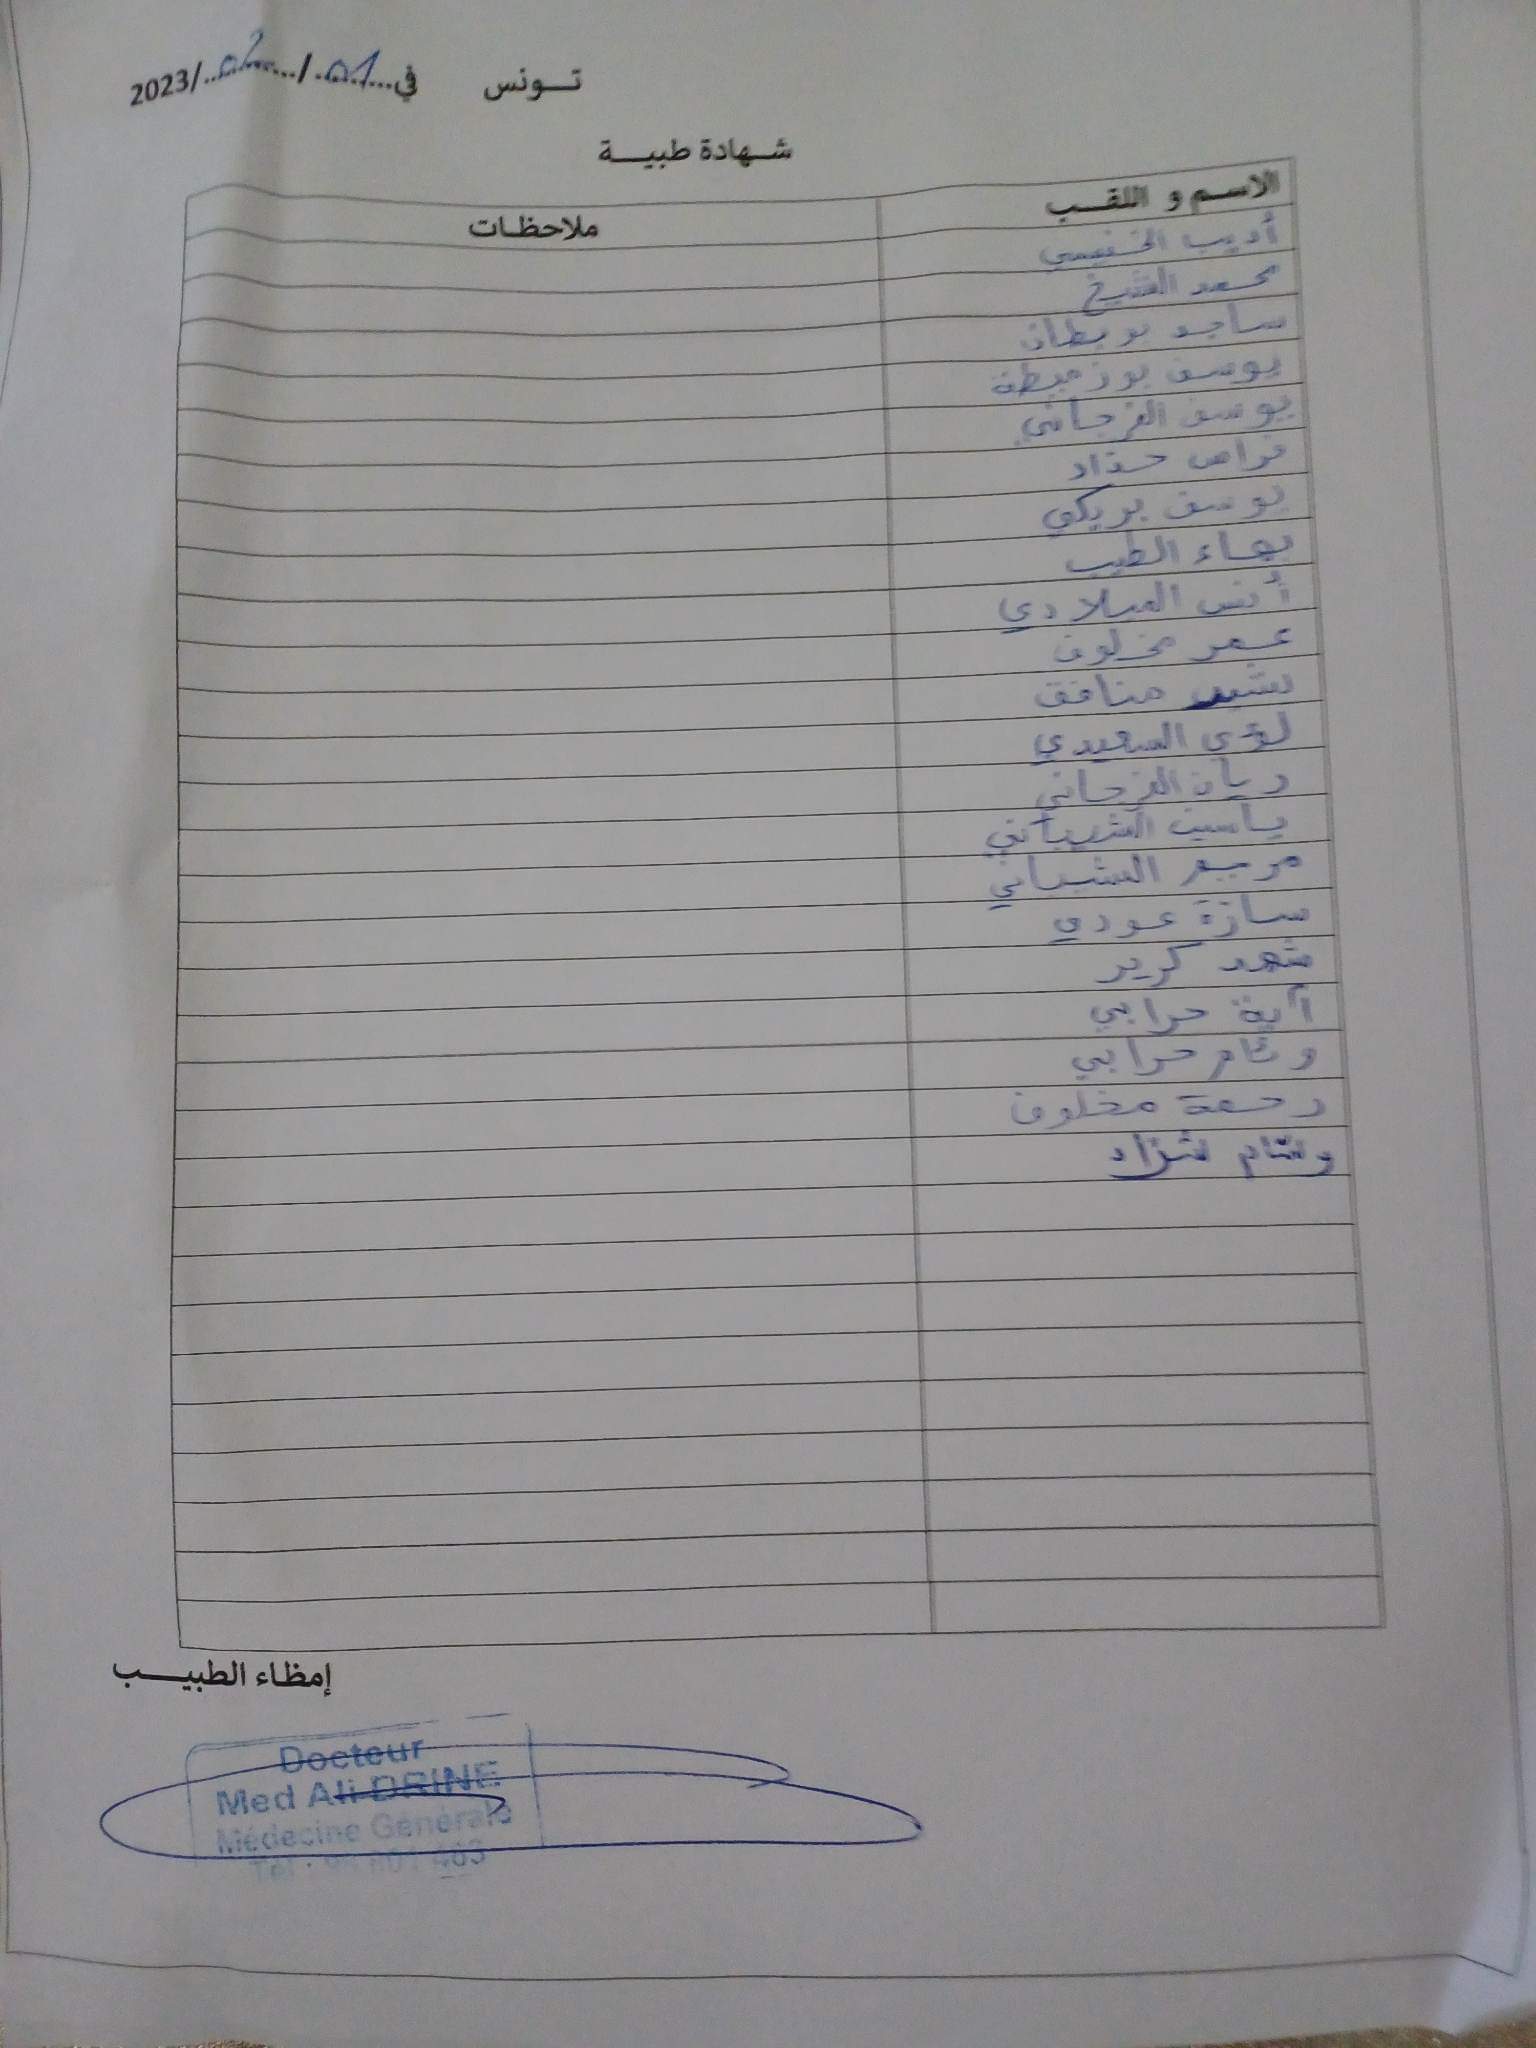 تـــونس في 01 / 02 /2023
شـــهادة طبيـــة
الاســم و اللقــب
ملاحظـات
أديب الخنيسي
محمد الشيخ
ساجد بوبطان
يوسف بوزميطة
يوسف الفرجاني
فراص حداد
يوسف بريكي
بهاء الطيب
أنس الميلادي
عمر مخلوف
منافق
لؤي السعيدي
ريان الفرجاني
ياسين الشيباني
مريم الشيباني
سارة عودي
شهد كرير
آية حرابي
وئام حرابي
رحمة مخلوف
وئام
إمظاء الطبيـــب
Docteur
Med Ali DRINE
Médecine Générale
Tél :